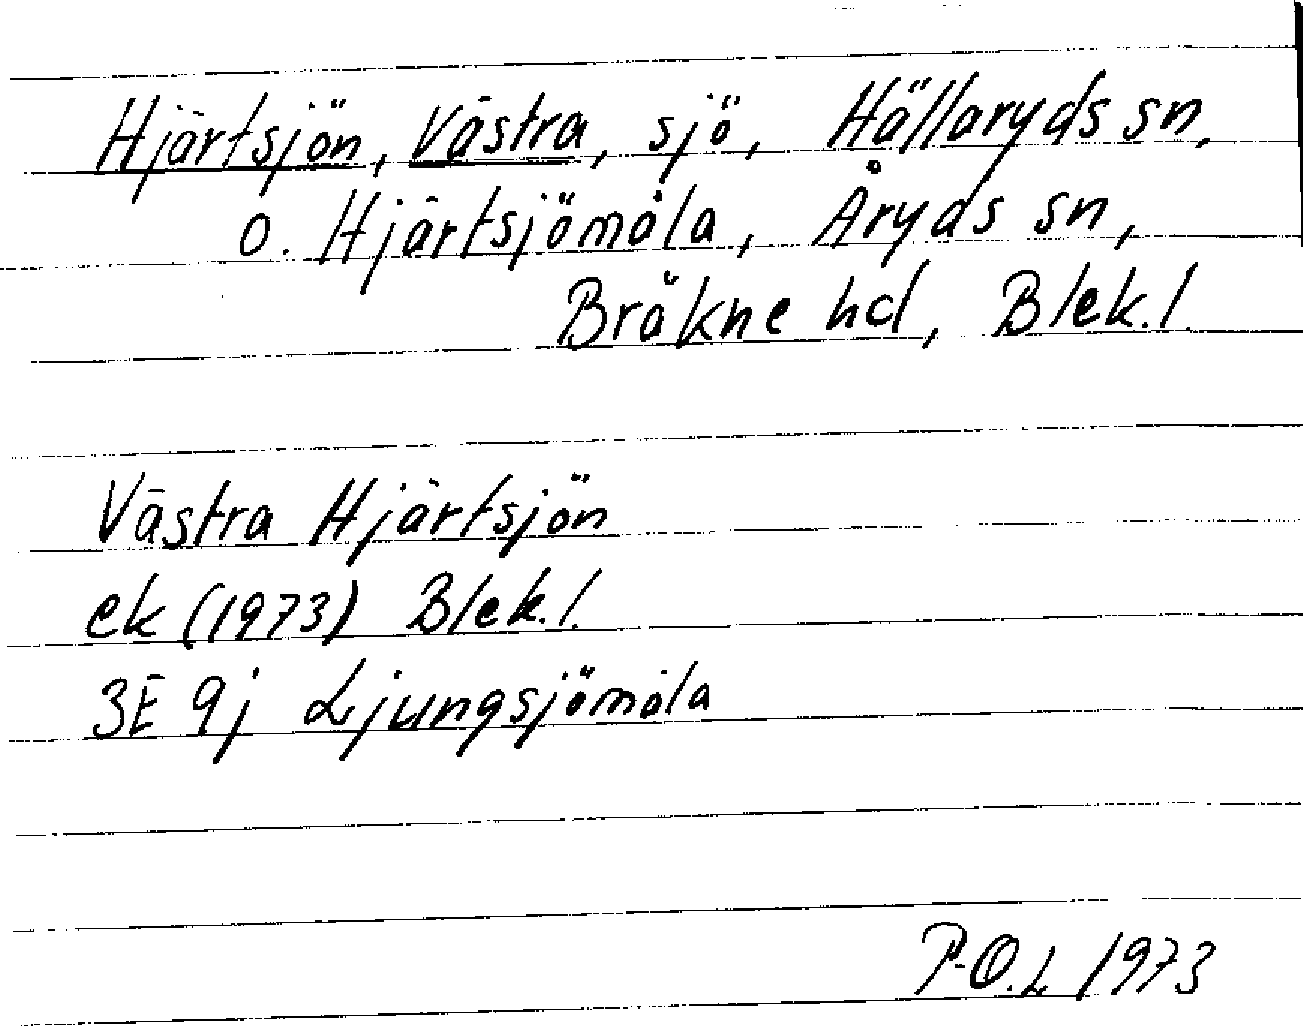 Hjärtsjön, Västra, sjö, Hällaryds sn,
o. Hjärtsjömåla, Åryds sn,
Bräkne hd, Blek.l.
Västra Hjärtsjön
ek (1973) Blek.l.
3E 9j Ljungsjömåla
P-O.L 1973